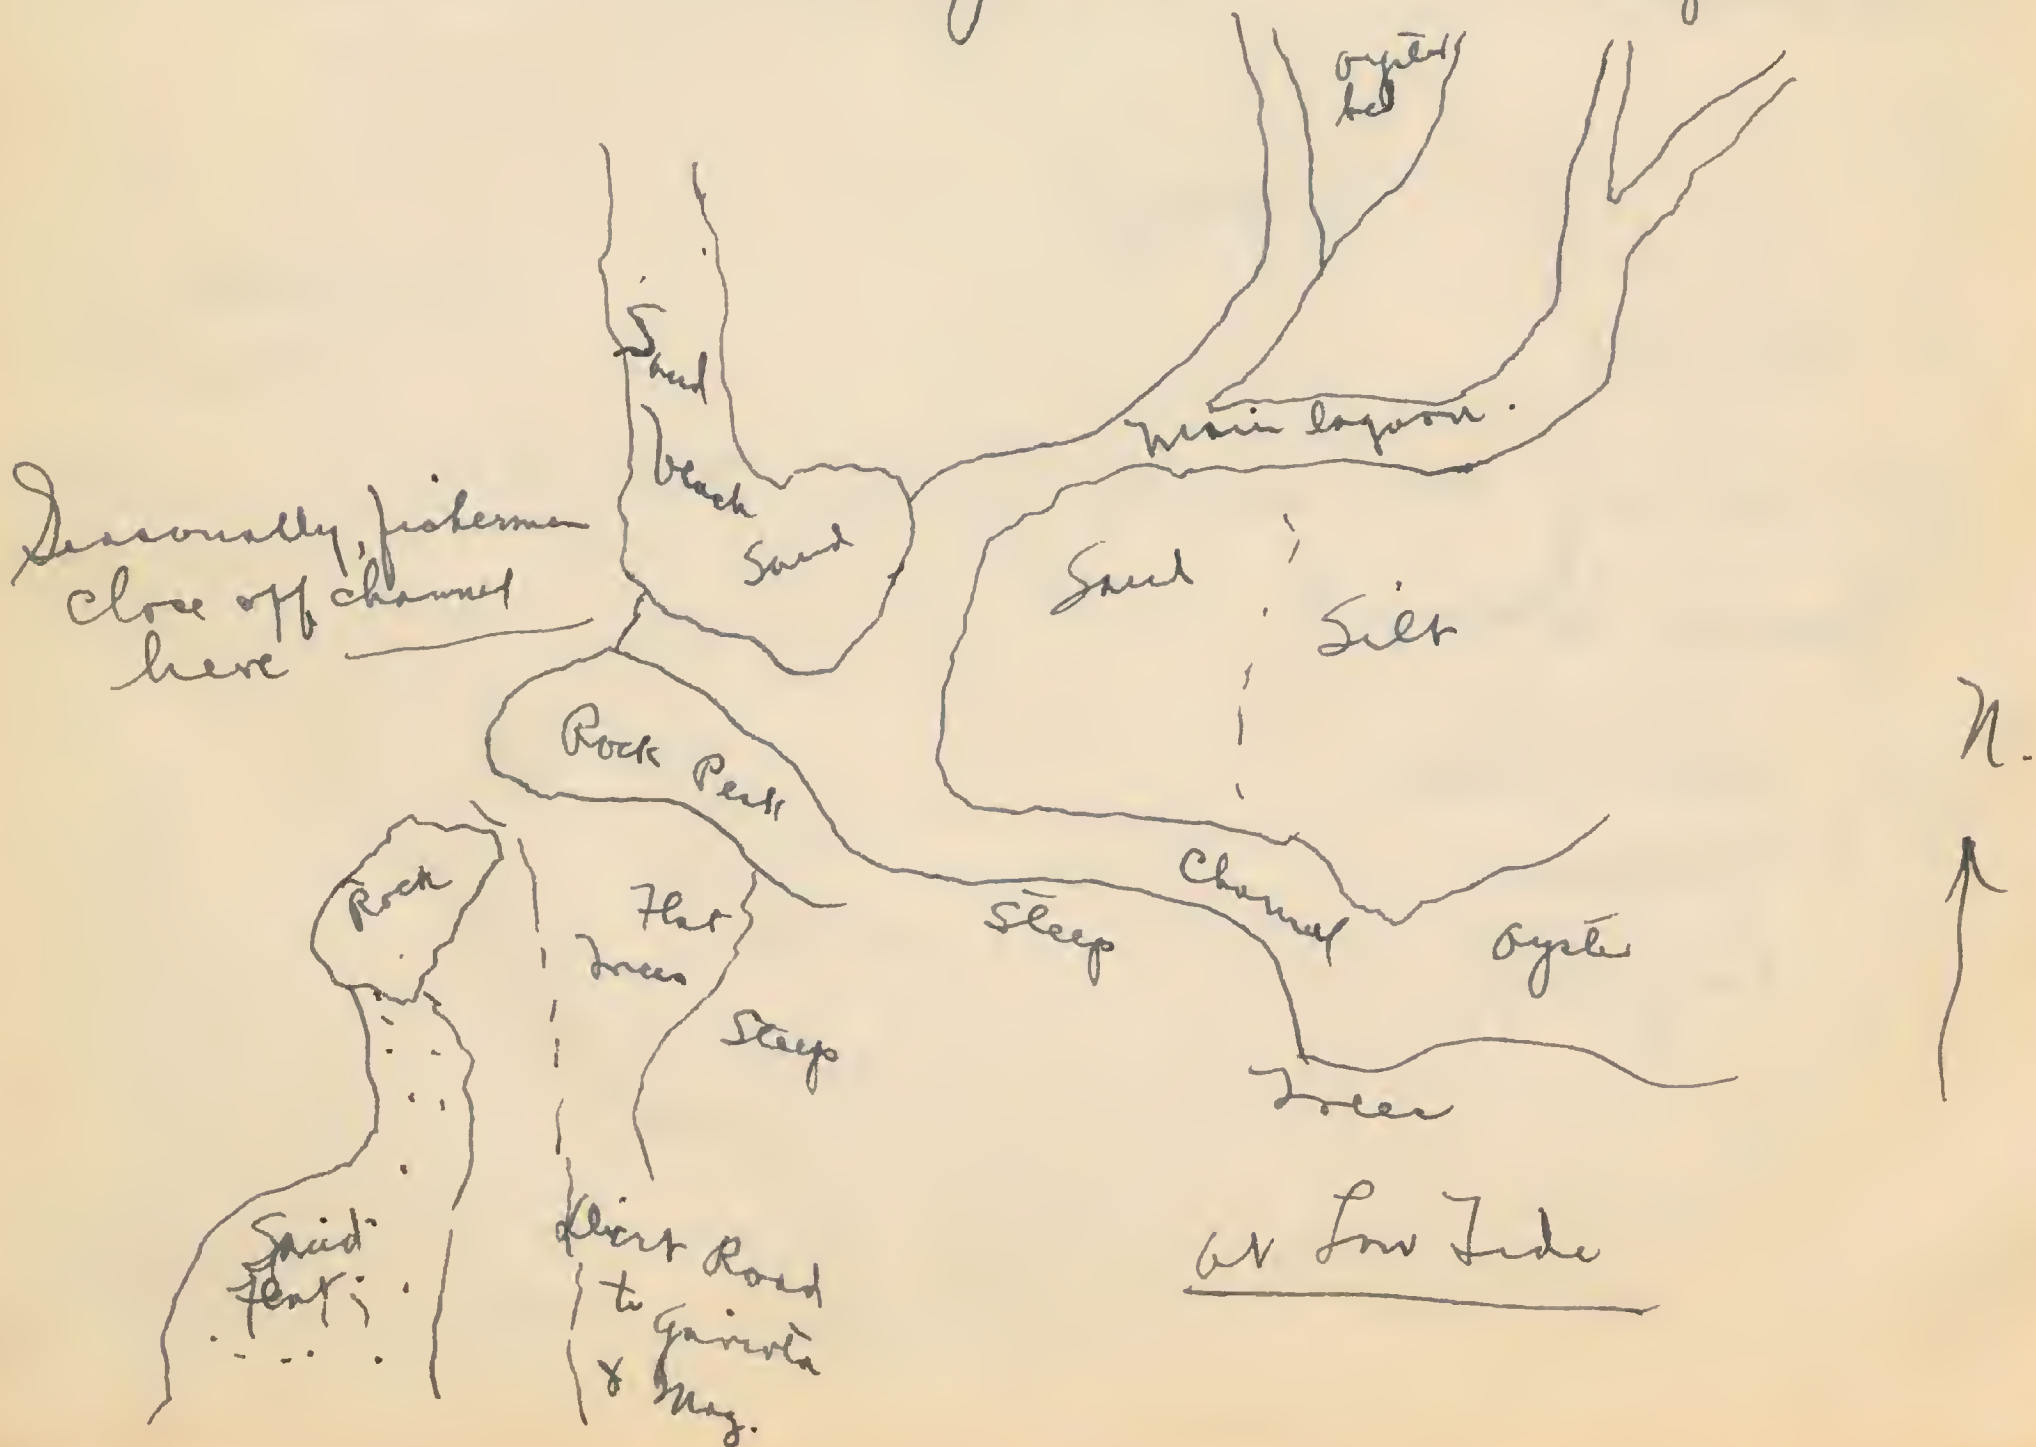 oyster
bed
Sand
beach
Sand
main lagoon.
Seasonally, fishermen
close off channel
here
Sand
Silt
N.
Rock Peak
Rock
Flat
Trees
Steep
Steep
Channel
oyster
Trees
Sand
flat
Dirt Road
to
&
Maz.
at Low Tide